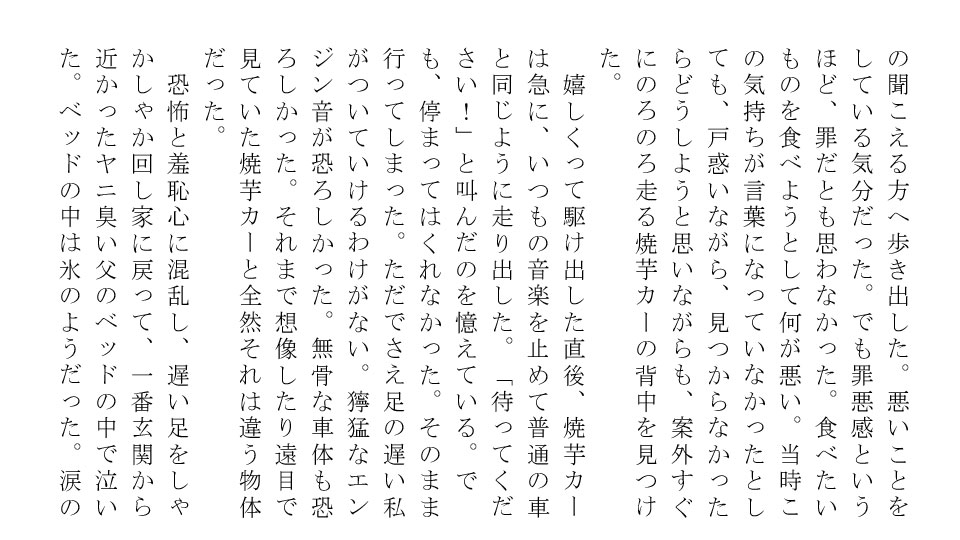 の聞こえる方へ歩き出した。悪いことを
している気分だった。でも罪悪感という
ほど、罪だとも思わなかった。食べたい
ものを食べようとして何が悪い。当時こ
の気持ちが言葉になっていなかったとし
ても、戸惑いながら、見つからなかった
らどうしようと思いながらも、案外すぐ
にのろのろ走る焼芋カーの背中を見つけ
た。
嬉しくって駆け出した直後、焼芋カー
は急に、いつもの音楽を止めて普通の車
と同じように走り出した。「待ってくだ
さい！」と叫んだのを憶えている。で
も、停まってはくれなかった。そのまま
行ってしまった。ただでさえ足の遅い私
がついていけるわけがない。獰猛なエン
ジン音が恐ろしかった。無骨な車体も恐
ろしかった。それまで想像したり遠目で
見ていた焼芋カーと全然それは違う物体
だった。
恐怖と羞恥心に混乱し、遅い足をしゃ
かしゃか回し家に戻って、一番玄関から
近かったヤニ臭い父のベッドの中で泣い
た。ベッドの中は氷のようだった。涙の